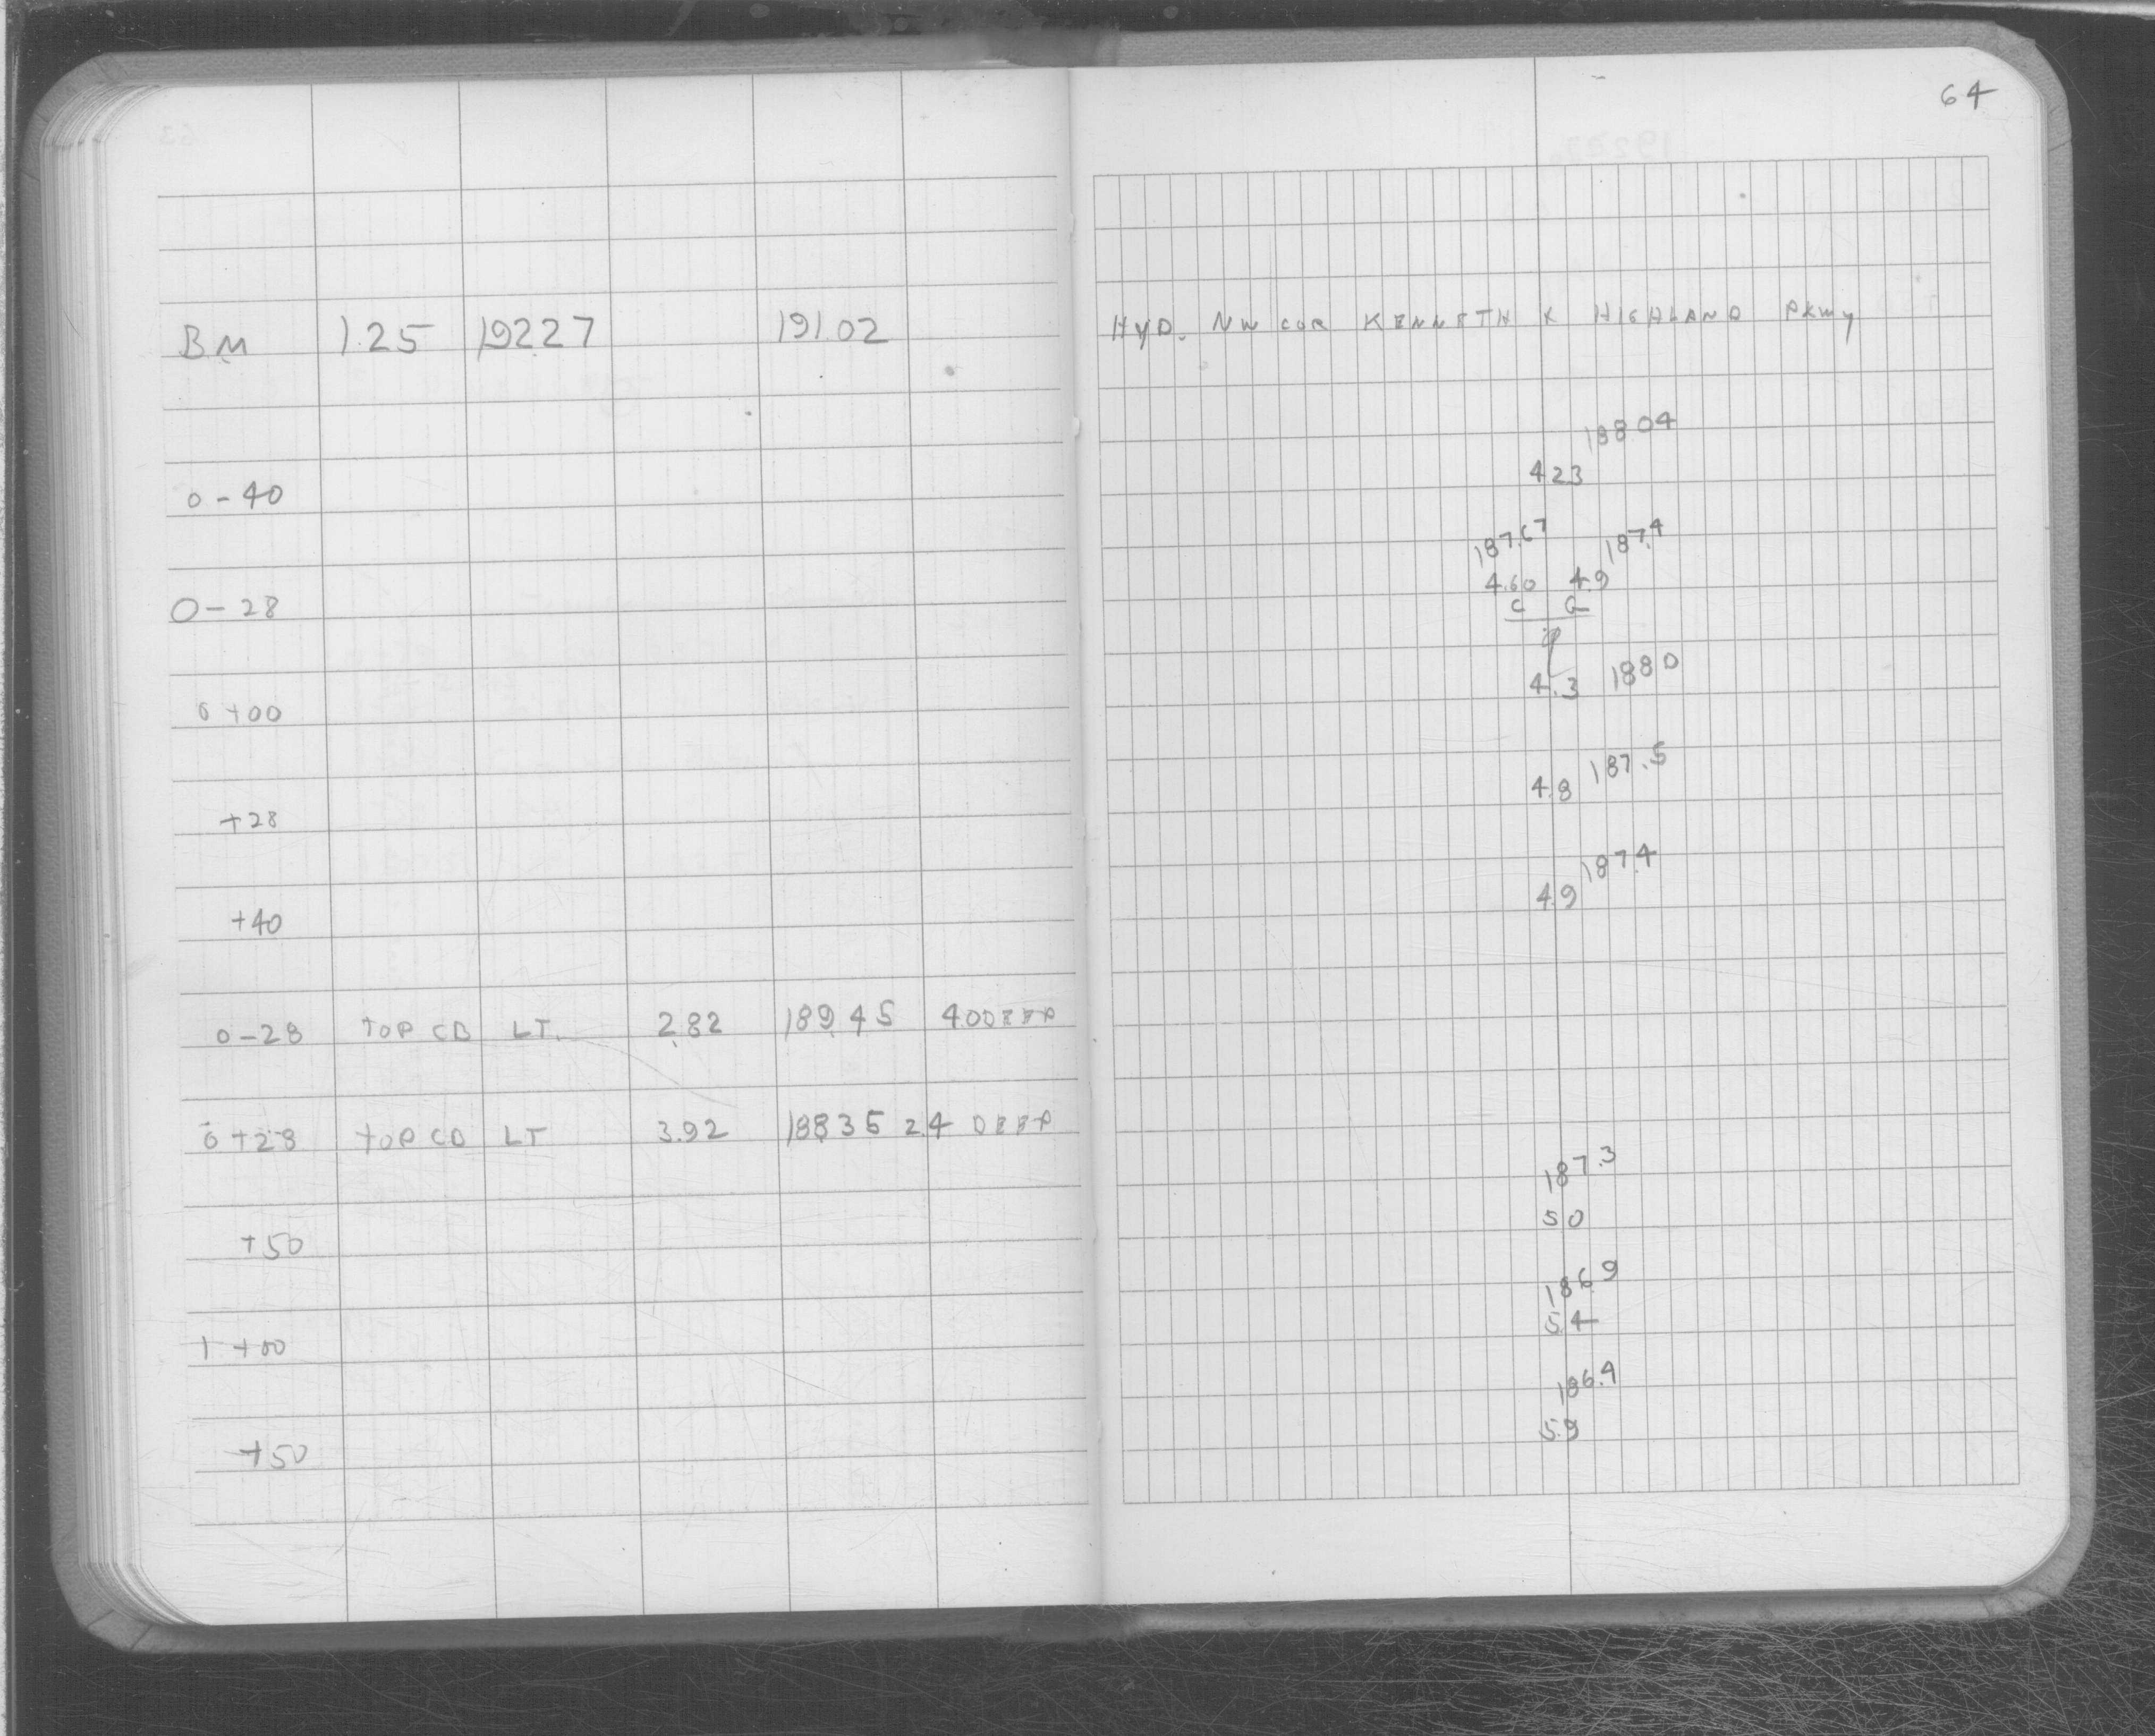 64
BM 1.25 192.27 191.02 HYD. NW COR KENNETH & HIGHLAND PKWY
188.04
0-40 4.23
187.67 187.4
0-28 4.60 4.9
C G
0+00 4.3 188.0
+28 4.8 187.5
187.4
+40 4.9
0-28 TOP CB LT. 2.82 189.45 4.00 DEEP
0+28 TOP CB LT 3.92 188.35 2.4 DEEP
187.3
+50 5.0
186.9
1+00 5.4
186.4
+50 5.9